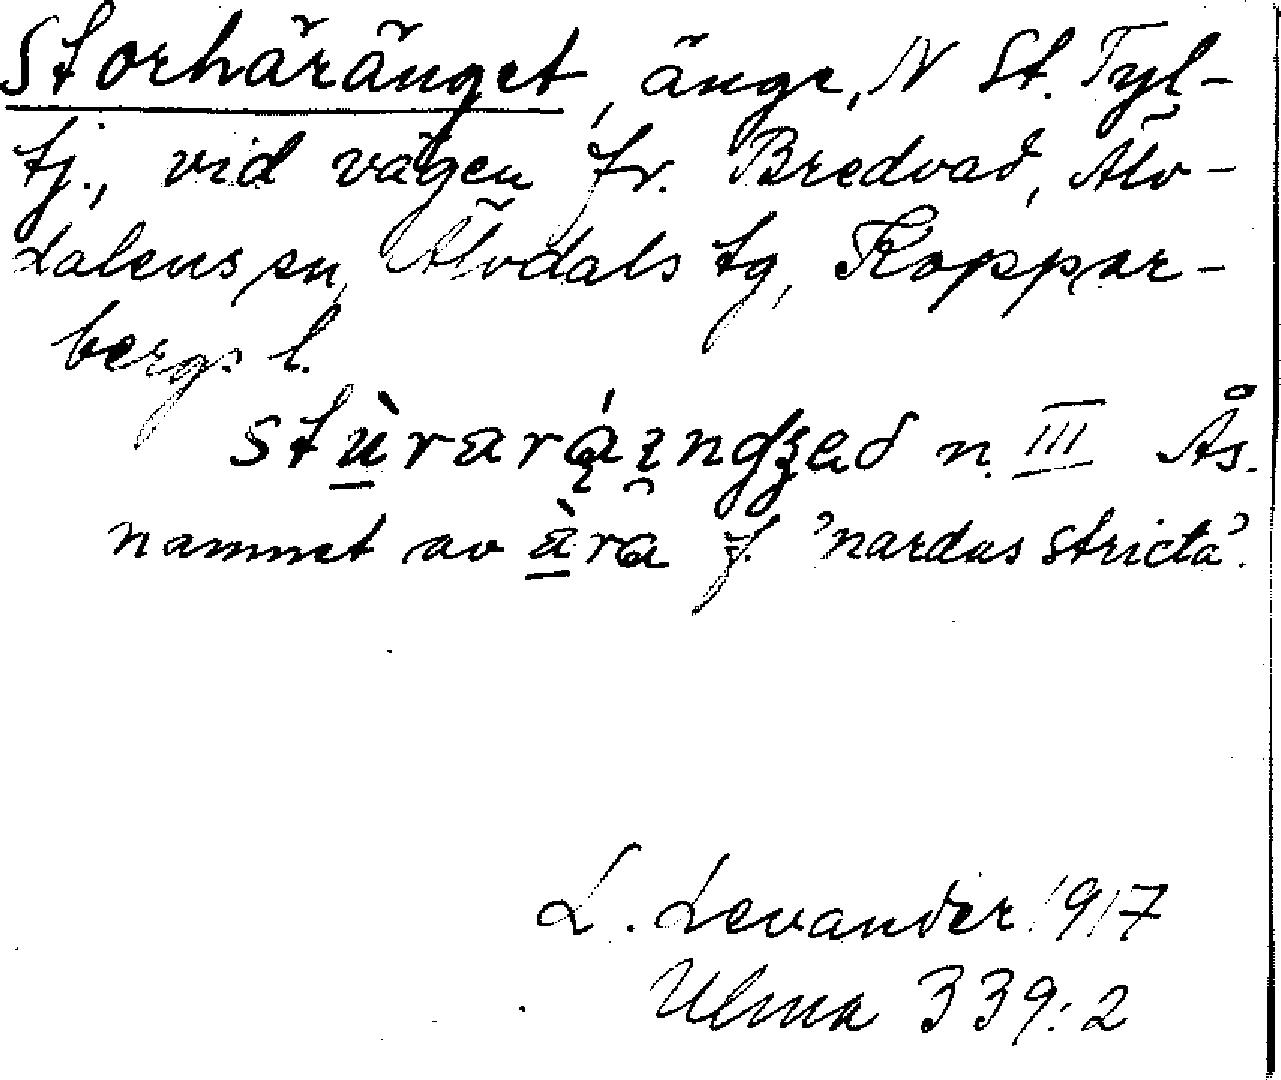 Storhäränget, änge, N St. Tyl-
tj., vid vägen fr. Bredvad, Älv-
dalens sn, Älvdals tg, Koppar-
bergs l.
stù̲rarą́ındʒəd n. III Ås.
namnet av à̲râ f. 'nardus stricta'.
L. Levander 1917
Ulma 339:2